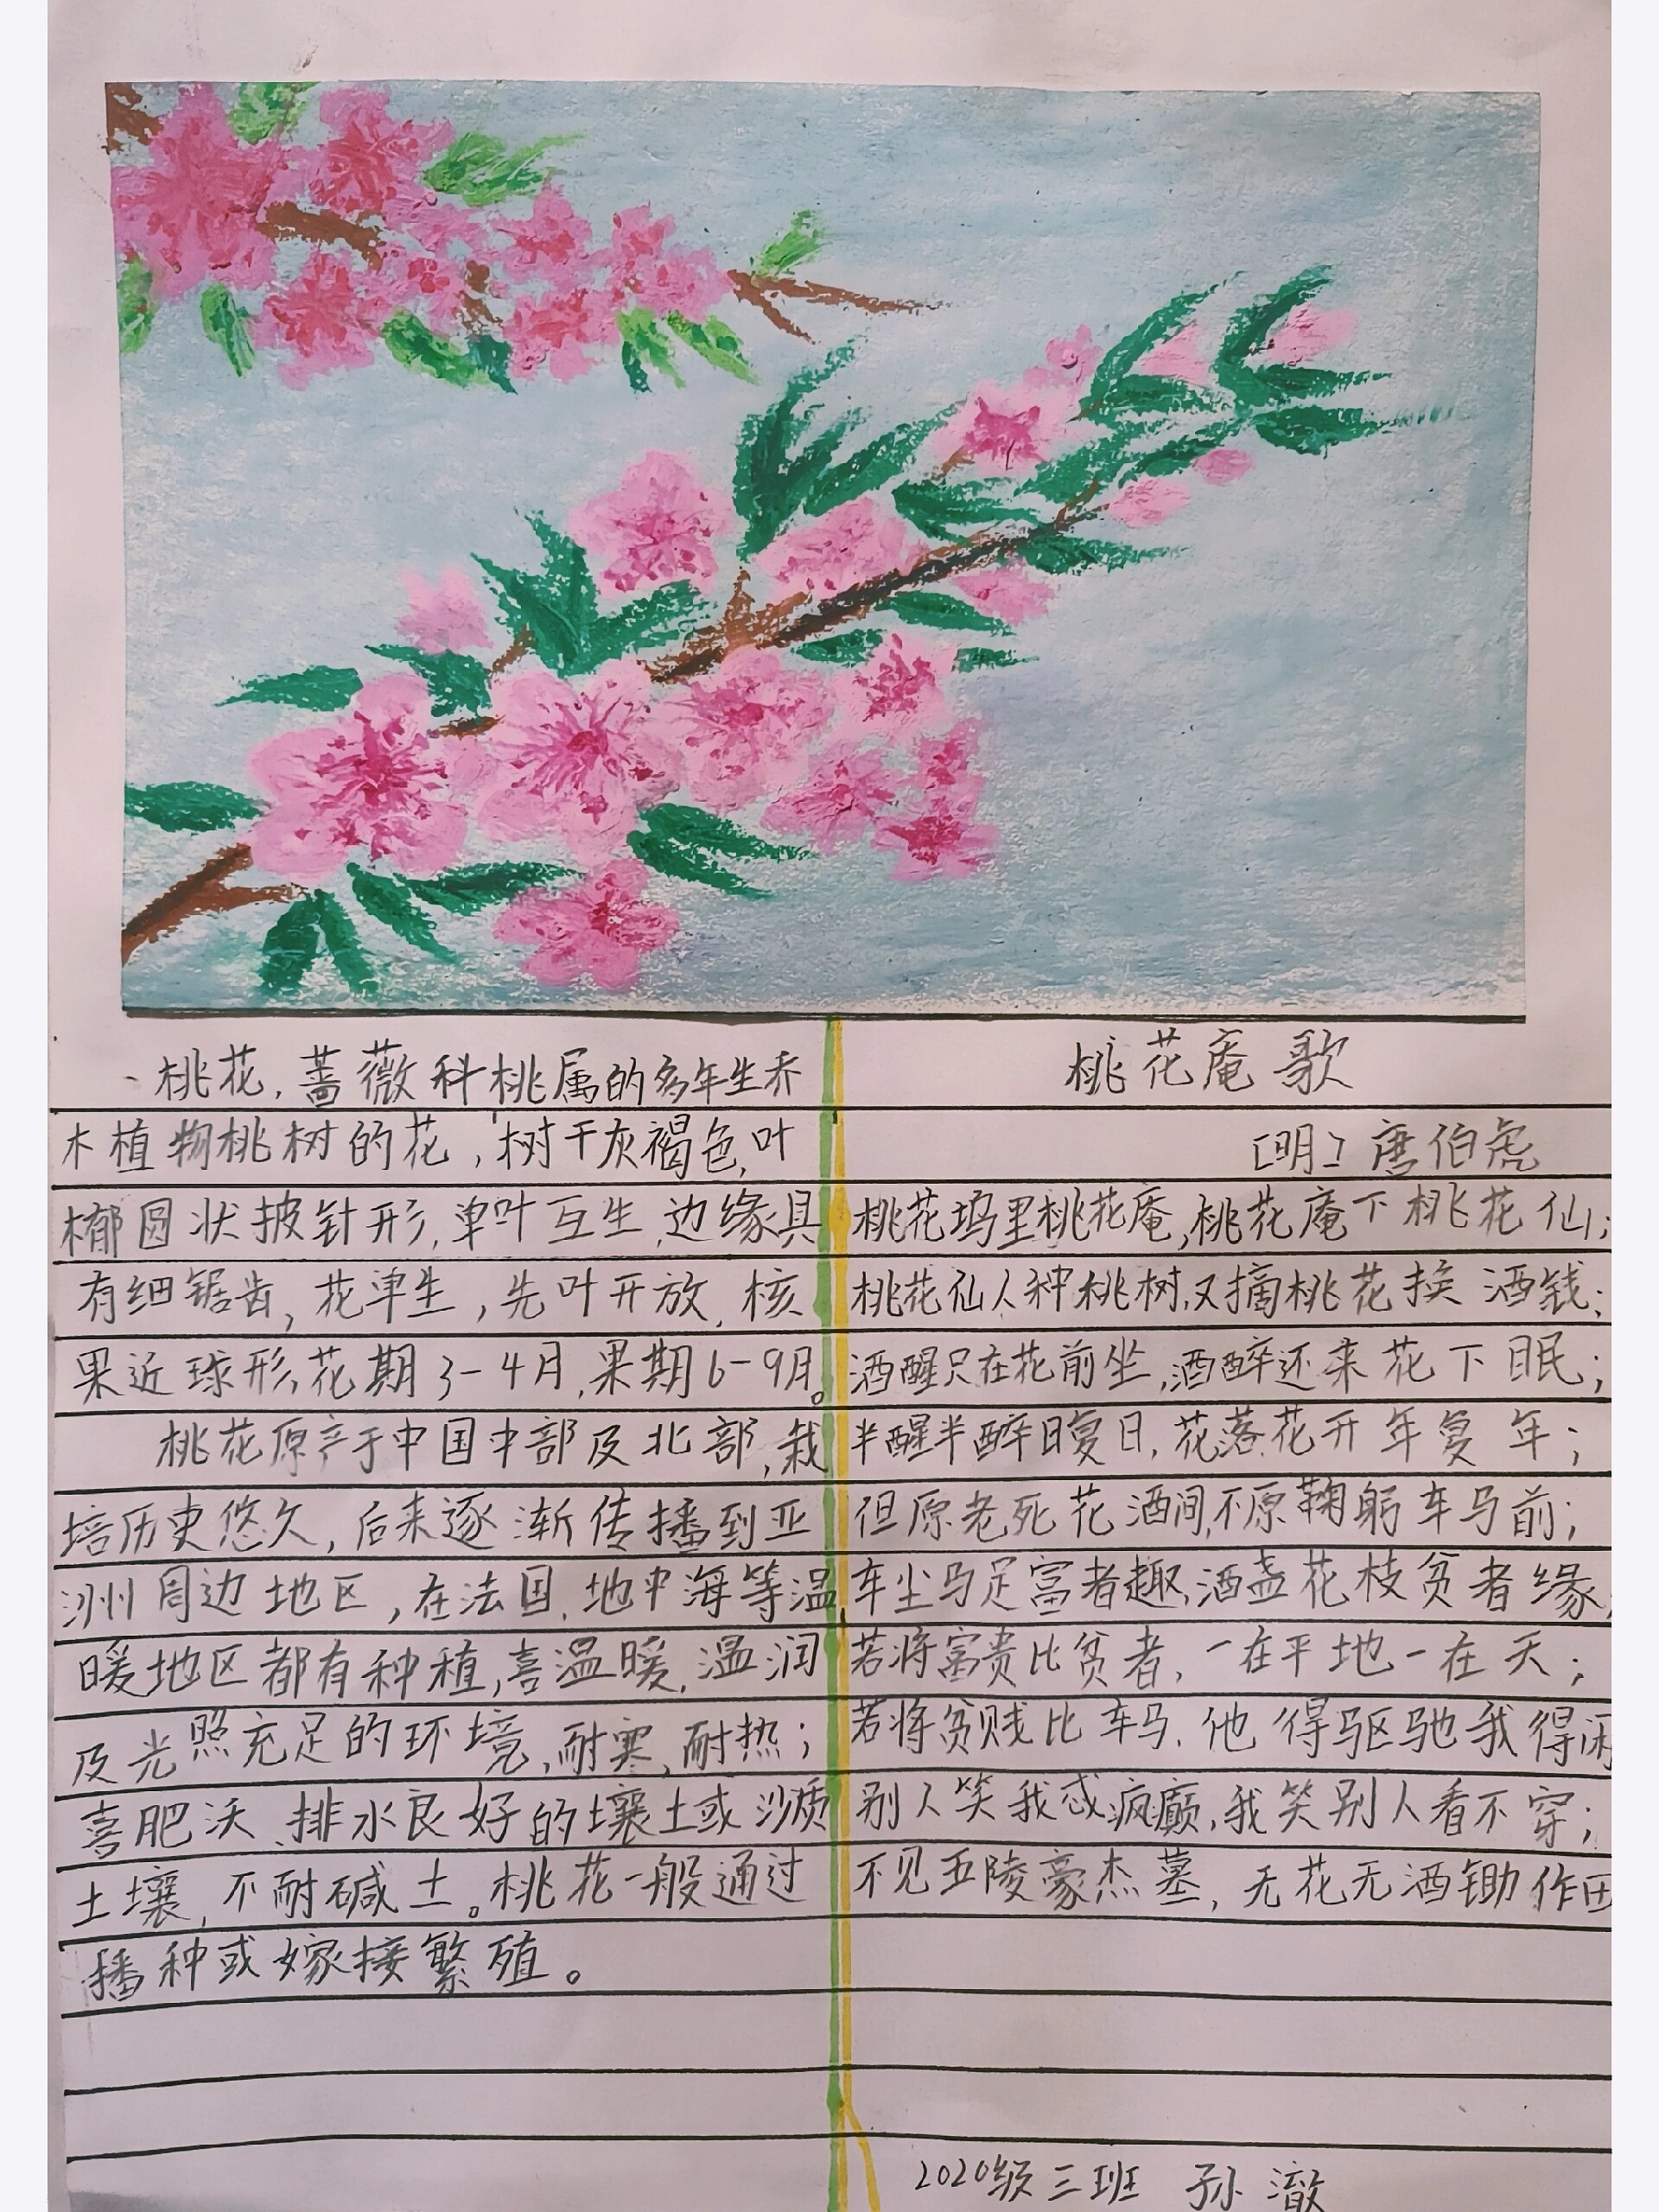 桃花，蔷薇科桃属的多年生乔
木植物桃树的花，树干灰褐色，叶
椭圆状披针形，单叶互生，边缘具
有细锯齿，花单生，先叶开放，核
果近球形，花期3-4月，果期6-9月。
桃花原产于中国中部及北部，栽
培历史悠久，后来逐渐传播到亚
洲周边地区，在法国，地中海等温
暖地区都有种植，喜温暖，温润
及光照充足的环境，耐寒，耐热；
喜肥沃、排水良好的壤土或沙质
土壤，不耐碱土。桃花一般通过
播种或嫁接繁殖。
桃花庵歌
[明] 唐伯虎
桃花坞里桃花庵，桃花庵下桃花仙；
桃花仙人种桃树，又摘桃花换酒钱；
酒醒只在花前坐，酒醉还来花下眠；
半醒半醉日复日，花落花开年复年；
但原老死花酒间，不原鞠躬车马前；
车尘马足富者趣，酒盏花枝贫者缘，
若将富贵比贫者，一在平地一在天；
若将贫贱比车马，他得驱驰我得闲
别人笑我忒疯癫，我笑别人看不穿；
不见五陵豪杰墓，无花无酒锄作田
2020级三班 孙澈